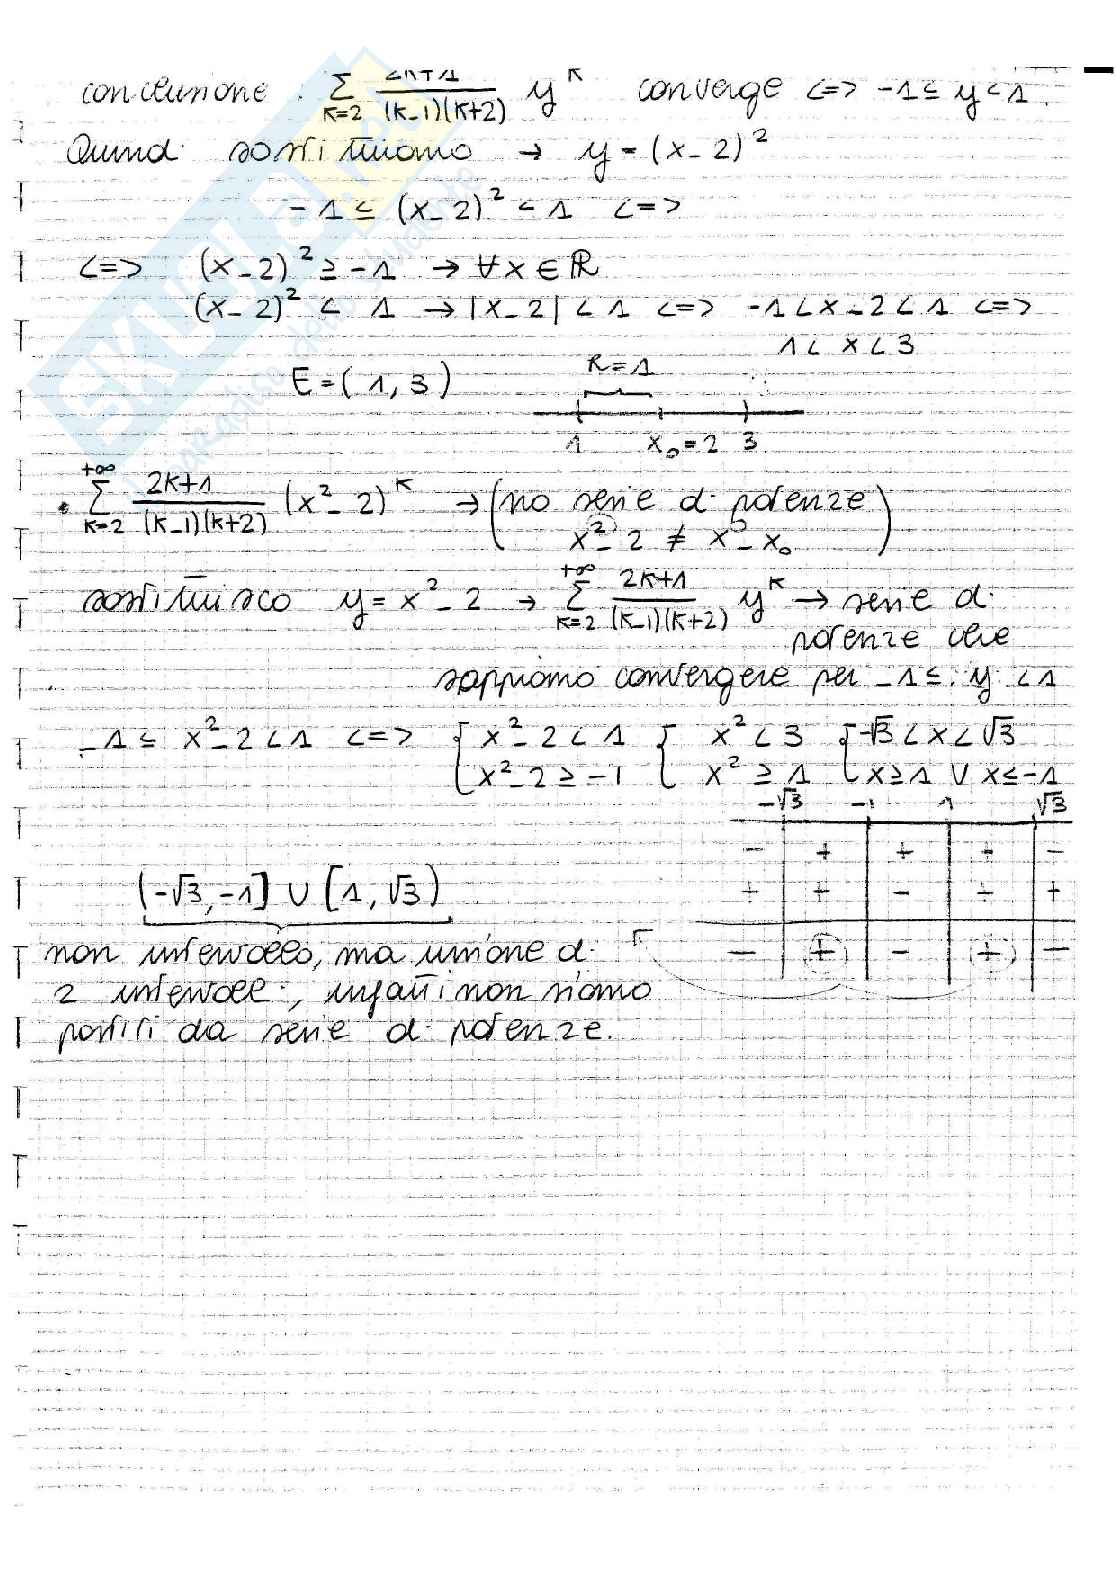 conclusione . Σ K=2 2K+1/(K-1)(K+2) y^K converge <=> -1 ≤ y < 1.
Quindi sostituiamo → y = (x-2)²
-1 ≤ (x-2)² < 1 <=>
<=> (x-2)² ≥ -1 → ∀x ∈ ℝ
(x-2)² < 1 → |x-2| < 1 <=> -1 < x-2 < 1 <=>
1 < x < 3
R=1
E = (1, 3)
1 x₀=2 3
• Σ K=2 +∞ 2K+1/(K-1)(K+2) (x²-2)^K → (no serie di potenze
x²-2 ≠ x-x₀)
sostituisco y = x²-2 → Σ K=2 +∞ 2K+1/(K-1)(K+2) y^K → serie di
potenze che
sappiamo convergere per -1 ≤ y < 1
-1 ≤ x²-2 < 1 <=> { x²-2 < 1 { x² < 3 { -√3 < x < √3
x²-2 ≥ -1 x² ≥ 1 x ≥ 1 ∨ x ≤ -1
-√3 -1 1 √3
- + + + -
+ + - + +
(-√3, -1] ∪ [1, √3)
- + - + -
non intervallo, ma unione di
2 intervalli, infatti non siamo
partiti da serie di potenze.